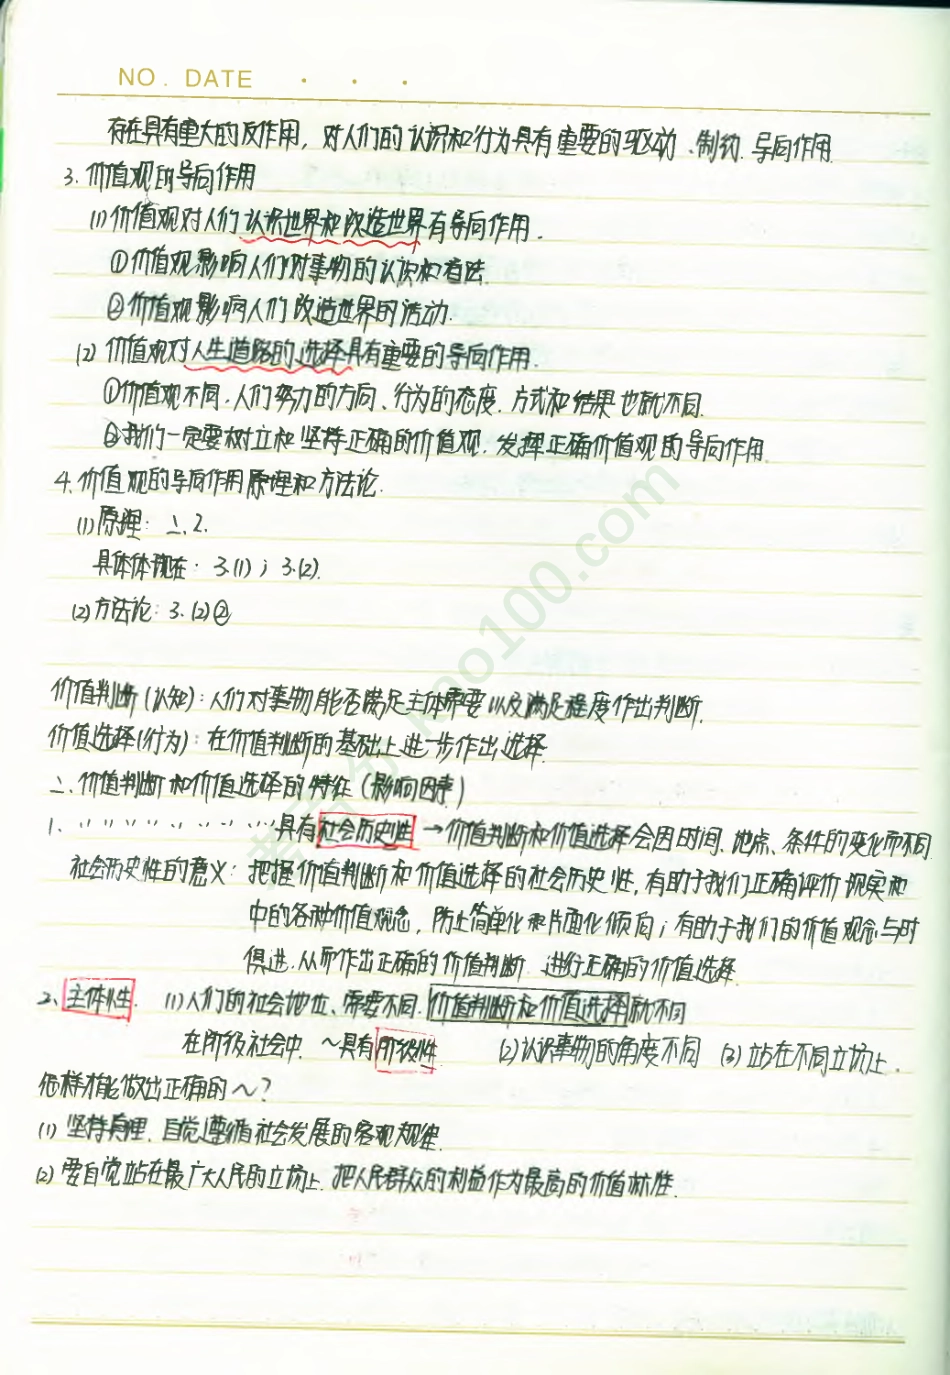 NO. DATE
存在具有重大的反作用，对人们的认识和行为具有重要的驱动、制约、导向作用.
3. 价值观的导向作用
(1) 价值观对人们认识世界和改造世界有导向作用.
①价值观影响人们对事物的认识和看法.
②价值观影响人们改造世界的活动.
(2) 价值观对人生道路的选择具有重要的导向作用.
①价值观不同, 人们努力的方向、行为的态度、方式和结果也就不同.
②我们一定要树立和坚持正确的价值观, 发挥正确价值观的导向作用.
4. 价值观的导向作用原理和方法论.
(1) 原理: 二、2.
具体体现在: 3.(1) ; 3.(2).
(2) 方法论: 3.(2)②
价值判断(认知): 人们对事物能否满足主体需要以及满足程度作出判断.
价值选择(行为): 在价值判断的基础上进一步作出选择.
二、价值判断和价值选择的特征 (影响因素)
1. 〃〃〃〃〃〃〃 具有社会历史性 → 价值判断和价值选择会因时间、地点、条件的变化而不同.
社会历史性的意义: 把握价值判断和价值选择的社会历史性, 有助于我们正确评价现实和
中的各种价值观念, 防止简单化和片面化倾向; 有助于我们的价值观念与时
俱进, 从而作出正确的价值判断, 进行正确的价值选择.
2、主体性. (1) 人们的社会地位、需要不同, 价值判断和价值选择就不同
在阶级社会中, ～具有阶级性 (2) 认识事物的角度不同 (3) 站在不同立场上.
怎样才能做出正确的～?
(1) 坚持真理, 自觉遵循社会发展的客观规律.
(2) 要自觉站在最广大人民的立场上, 把人民群众的利益作为最高的价值标准.
考百分 kao100.com